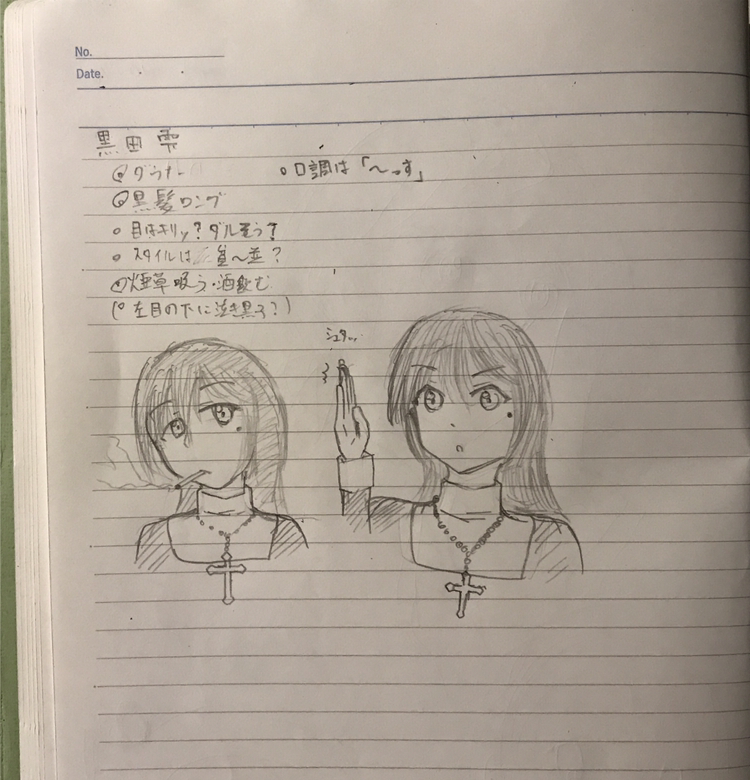 No.
Date.
黒田 雫
◎ダウナー
◦口調は「〜っす」
◎黒髪ロング
◦目はキリッ?ダルそう?
◦スタイルは 貧〜並?
◎煙草吸う・酒飲む
(◦左目の下に泣き黒子?)
シュタッ